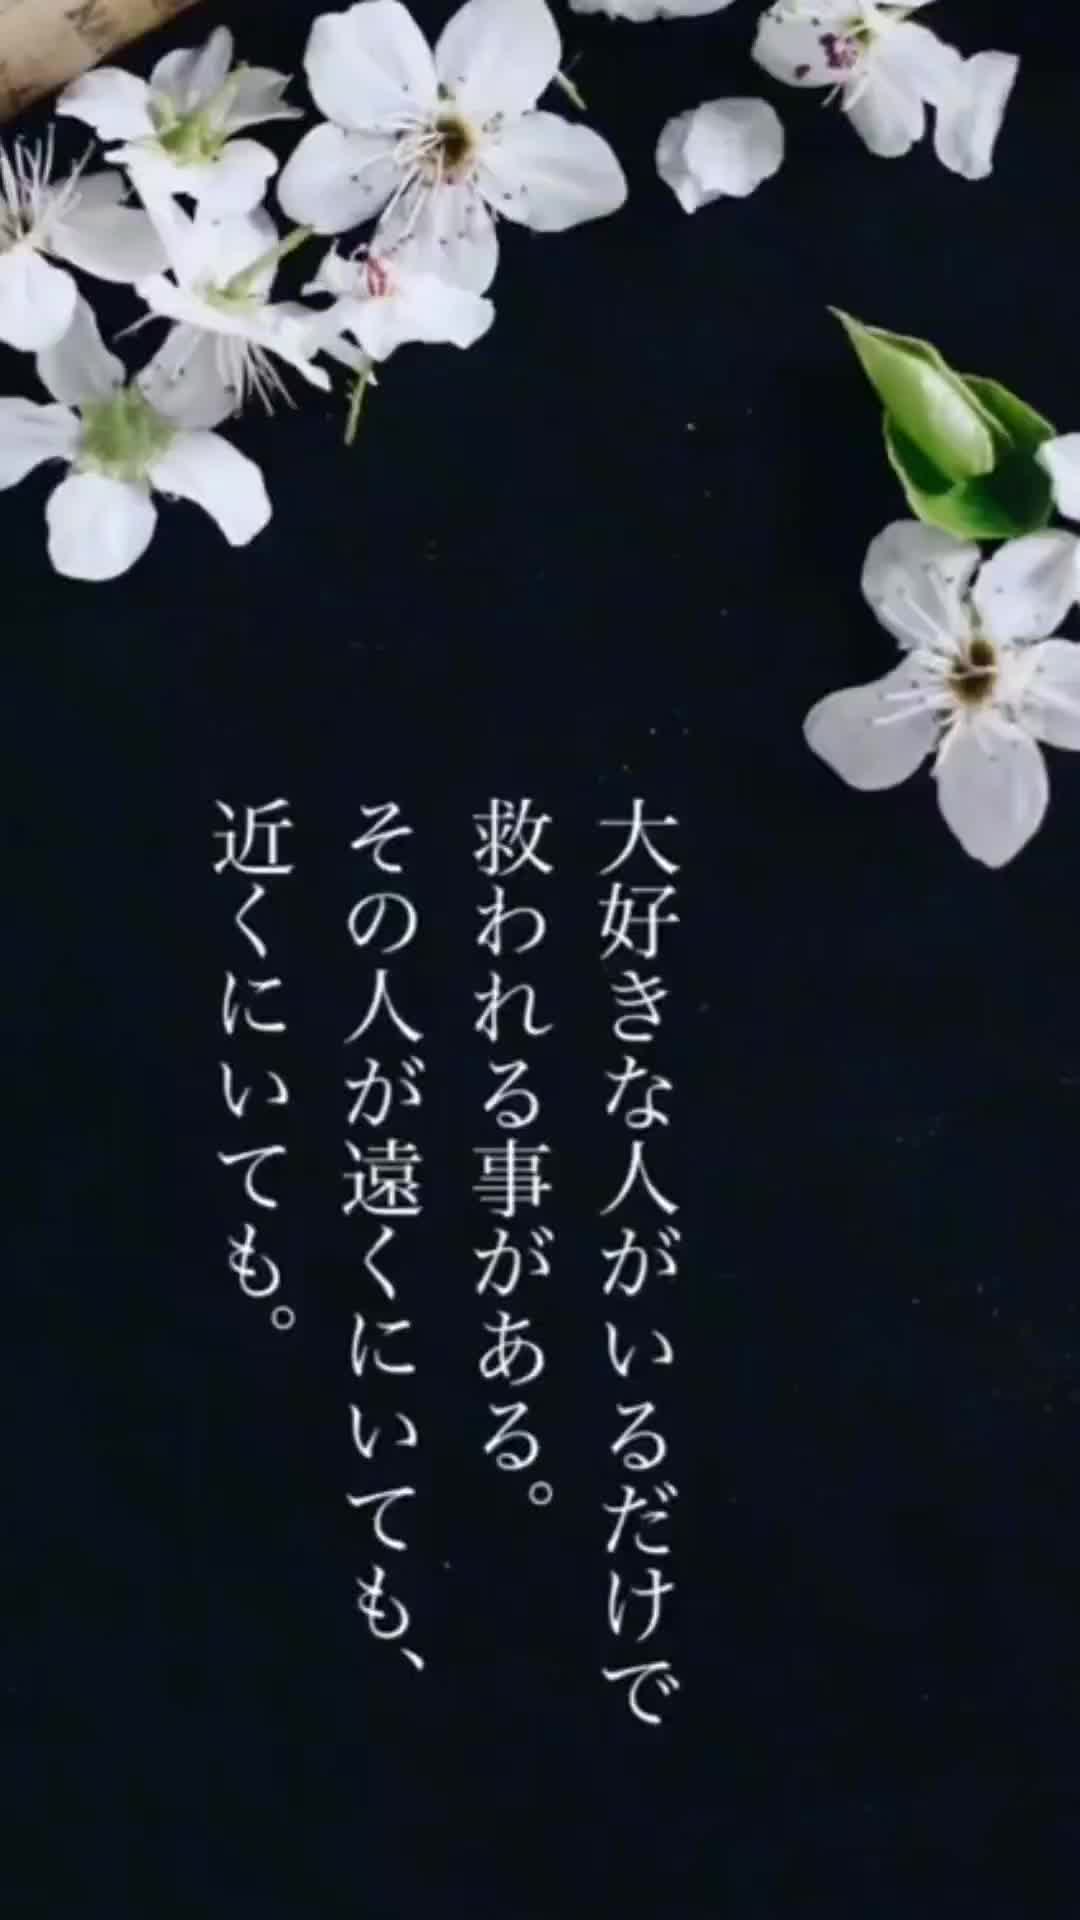 大好きな人がいるだけで
救われる事がある。
その人が遠くにいても、
近くにいても。